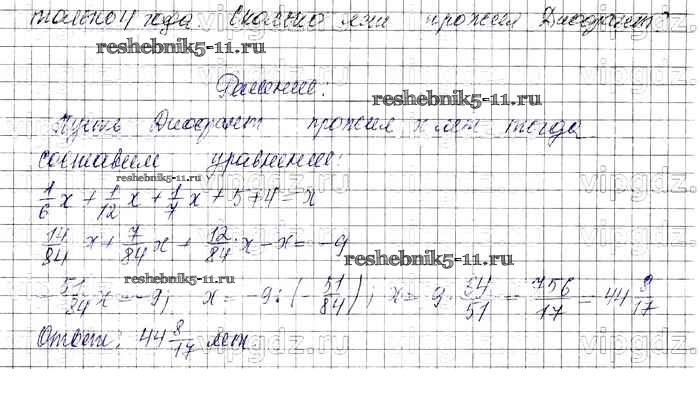 только 4 года. Сколько лет прожил Диофант?
reshebnik5-11.ru
Решение:
reshebnik5-11.ru
Пусть Диофант прожил x лет тогда
составим уравнение:
reshebnik5-11.ru
1/6 x + 1/12 x + 1/7 x + 5 + 4 = x
14/84 x + 7/84 x + 12/84 x - x = -9
reshebnik5-11.ru
reshebnik5-11.ru
-51/84 x = -9; x = -9 : (-51/84); x = 9 · 84/51 = 756/17 = 44 8/17
Ответ: 44 8/17 лет.
vipgdz.ru
vipgdz.ru
vipgdz.ru
vipgdz.ru